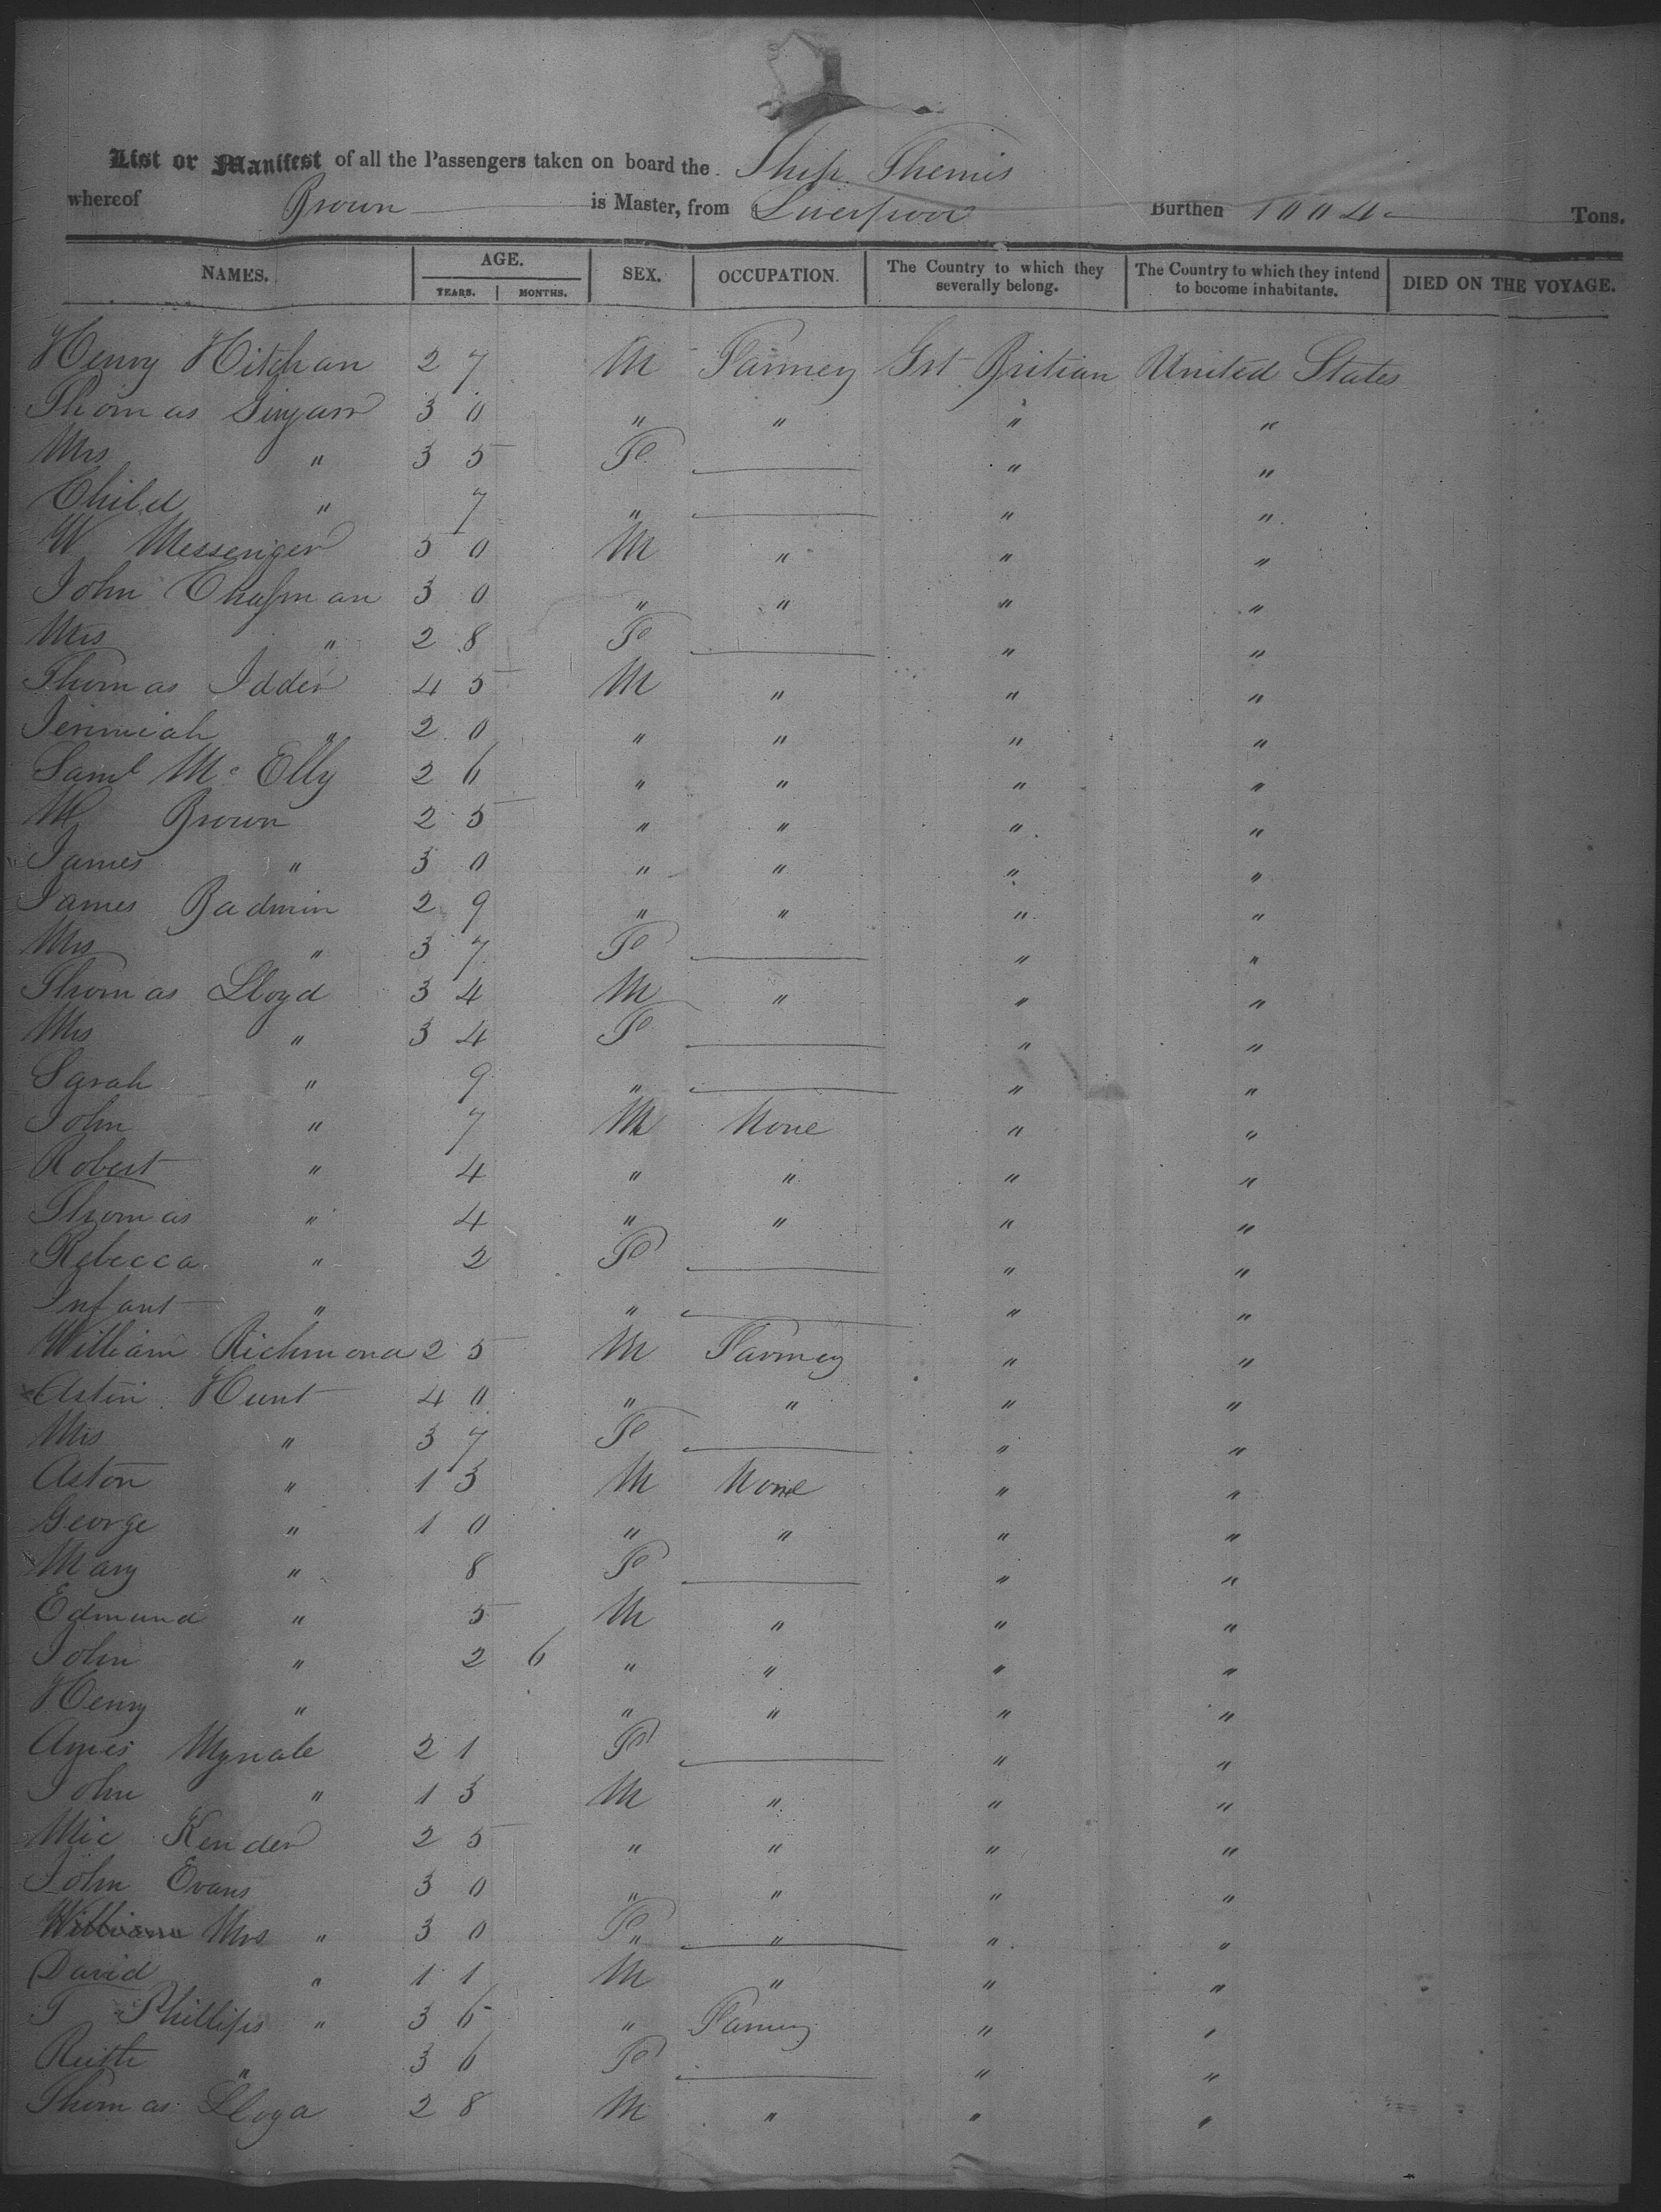 List or Manifest of all the Passengers taken on board the Ship Themis
whereof Brown is Master, from Liverpool Burthen 1004 Tons.
NAMES. AGE. SEX. OCCUPATION. The Country to which they severally belong. The Country to which they intend to become inhabitants. DIED ON THE VOYAGE.
YEARS. MONTHS.
Henry Hitchan 27 M Farmer Grt Britian United States
Thomas 30 " " " "
Mrs " 35 Fe " "
Child " 7 " " "
W Messenger 50 M " " "
John Chapman 30 " " " "
Mrs " 28 Fe " "
Thomas Idder 45 M " " "
Jerimiah " 20 " " " "
Saml Mc Elly 26 " " " "
M Brown 25 " " " "
James " 30 " " " "
James Badmin 29 " " " "
Mrs " 37 Fe " "
Thomas Lloyd 34 M " " "
Mrs " 34 Fe " "
Sarah " 9 " " "
John " 7 M None " "
Robert " 4 " " " "
Thomas " 4 " " " "
Rebecca " 2 Fe " "
Infant " " " "
William Richmond 25 M Farmer " "
Astin Hunt 40 " " " "
Mrs " 37 Fe " "
Aston " 13 M None " "
George " 10 " " " "
Mary " 8 Fe " "
Edmund " 5 M " " "
John " 2 6 " " " "
Henry " " " " "
21 Fe " "
John " 13 M " " "
Mic Kender 25 " " " "
John Evans 30 " " " "
William Mrs " 30 Fe " " " "
David " 11 M " " "
T Phillips " 36 " Farmer " "
Ruth " 36 Fe " "
Thomas Lloyd 28 M " " "